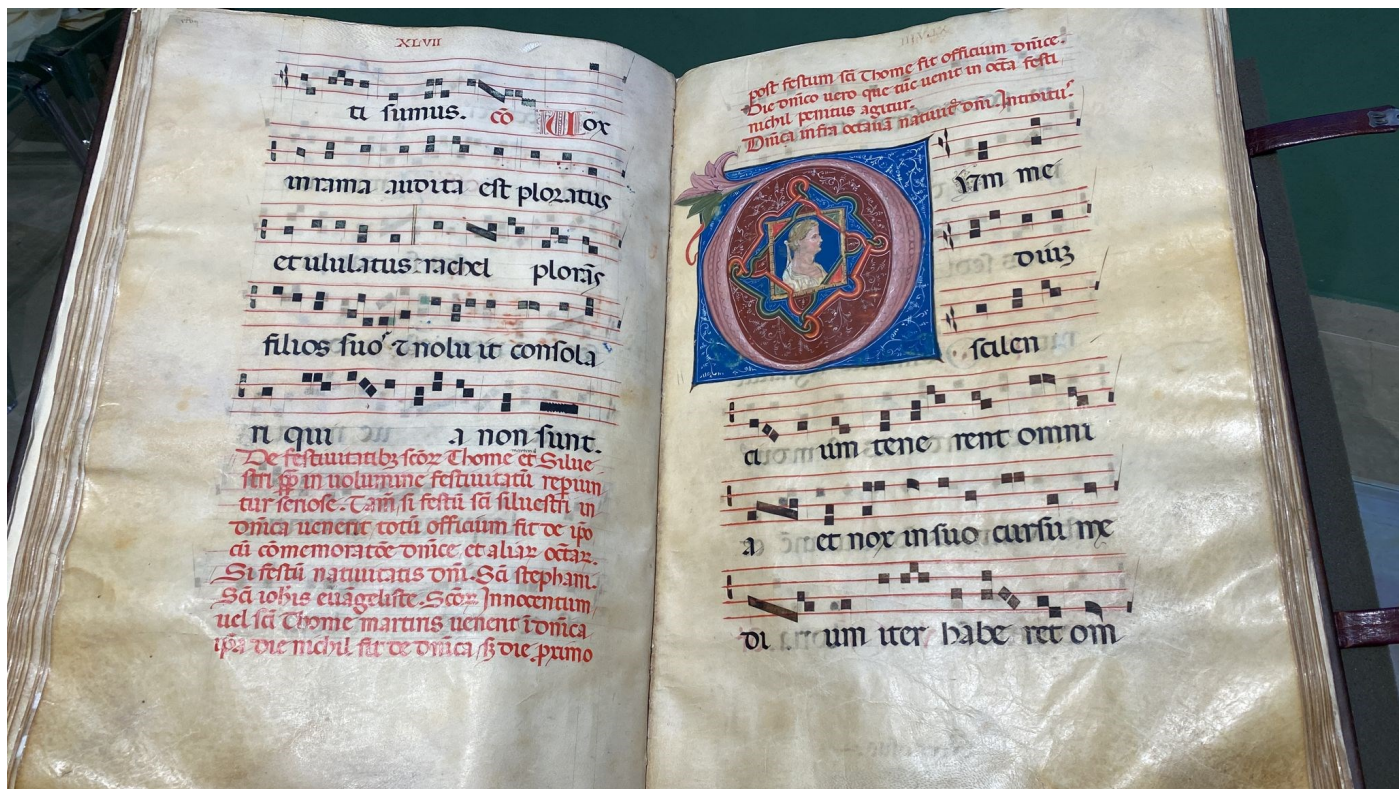 XLVII
ti sumus. cō Uox
in rama audita est ploratus
et ululatus rachel plorās
filios suoꝰ ⁊ nolu it consola
ri qui a non sunt.
De festiuitatibꝫ scōꝝ Thome et Silue
stri ꝑp in uolumine festiuitatū repiun
tur seriose. Tam̄ si festū sc̄i siluestri in
dn̄ica uenerit totū officium fit de ip̄o
cū cōmemoratōe dn̄ice, et aliaꝝ octaꝝ.
Si festū natiuitatis dn̄i. Sc̄i stephani.
Sc̄i ioh̄is euāgeliste. Scōꝝ Innocentum
uel sc̄i Thome martiris uenerit ī dn̄ica
ip̄a die nichil fit de dn̄ica, sꝫ die primo
XLVIII
post festum sc̄i Thome fit officium dn̄ice.
Die dn̄ico uero que tūc uenit in octa festi
nichil penitus agitur.
Dn̄ica infra octauā natiuit̄ dn̄i Introituꝰ.
Dvm me
diuꝫ
scilen
ci um tene rent omni
a et nox in suo cursu me
di um iter habe ret om̄